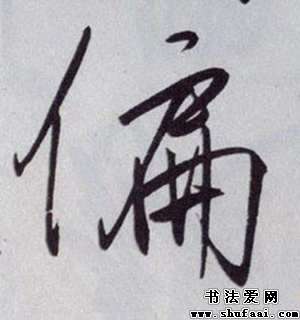 偏
书法爱网
www.shufaai.com